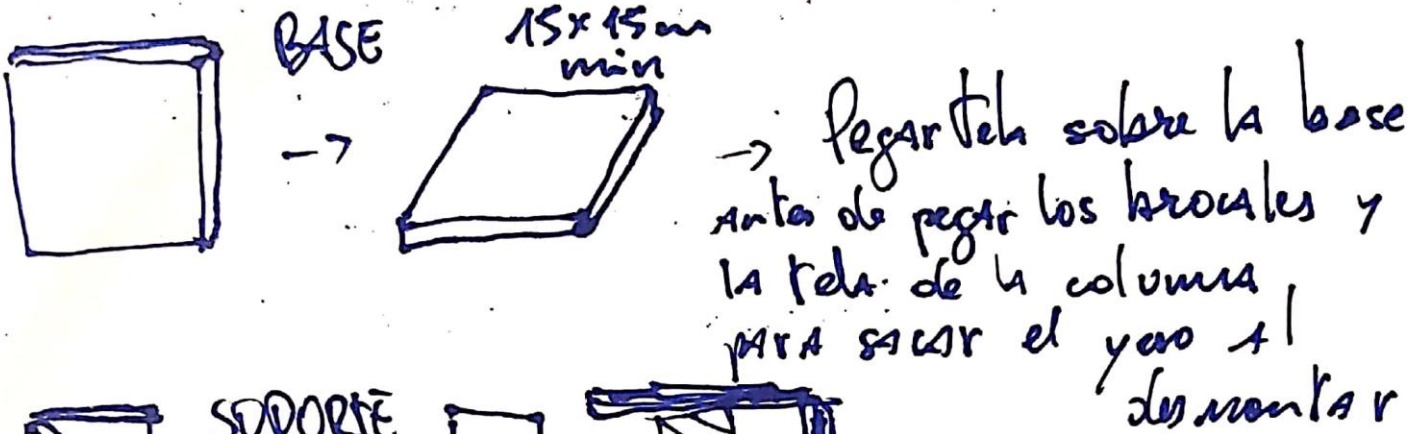 BASE
15x15 cm
min
-> -> Pegar tela sobre la base
antes de pegar los brocales y
la tela de la columna
para sacar el yeso al
desmontar
SOPORTE